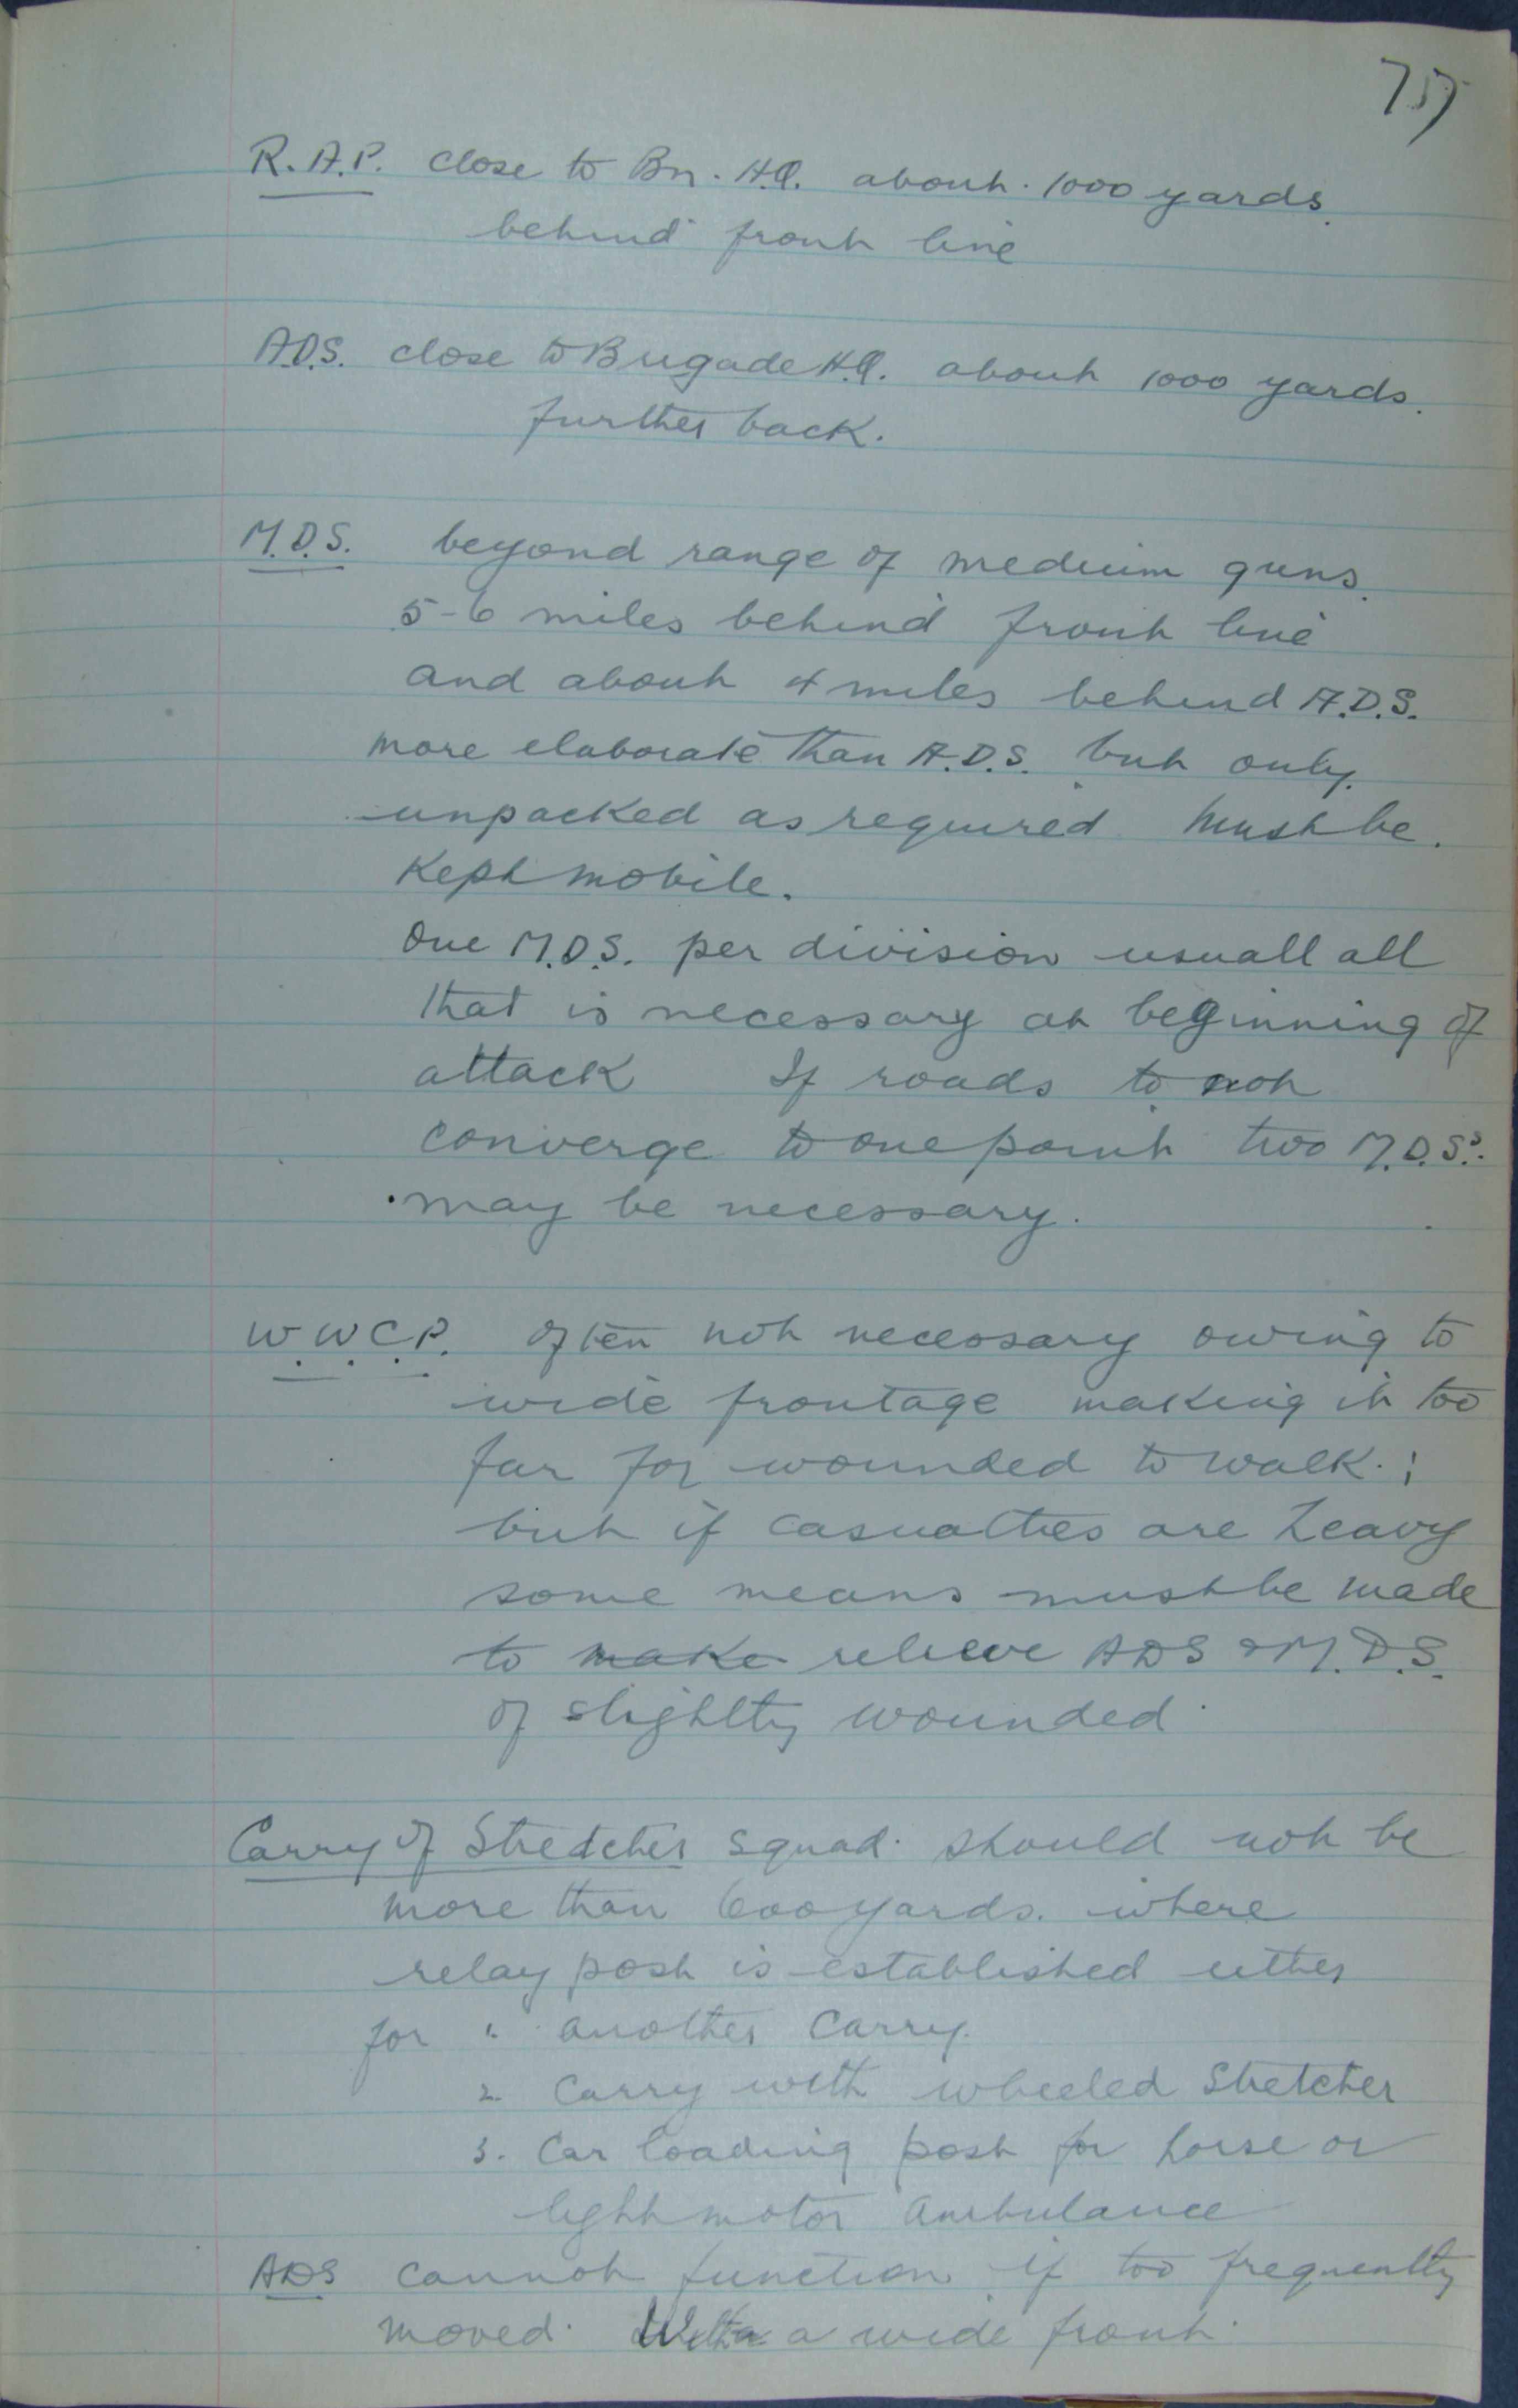 757
R.A.P. close to Bn. H.Q. about 1000 yards
behind front line
A.D.S. close to Brigade H.Q. about 1000 yards.
further back.
M.D.S. beyond range of medium guns
5-6 miles behind front line
and about 4 miles behind A.D.S.
more elaborate than A.D.S. but only
unpacked as required must be
kept mobile.
One M.D.S. per division usuall all
that is necessary at beginning of
attack If roads to not
converge to one point two M.D.S's.
may be necessary.
W.W.C.P. often not necessary owing to
wide frontage making it too
far for wounded to walk. ;
but if casualties are heavy
some means must be made
to make relieve ADS & M.D.S.
of slightly wounded
Carry of Stretcher squad should not be
more than 600 yards. where
relay post is established either
for 1. another carry.
2. Carry with wheeled stretcher
3. Car loading post for horse or
light motor ambulance
ADS cannot function if too frequently
moved. With a wide front.